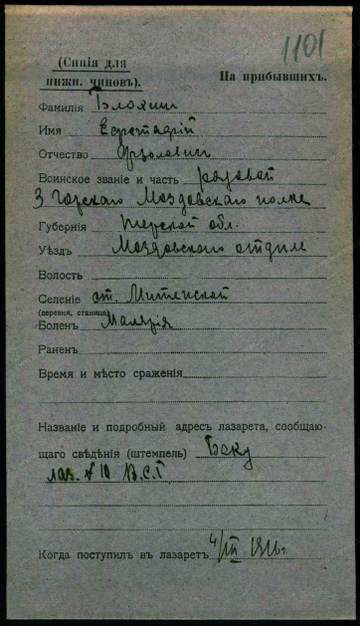 1101
(Синія для
нижн. чиновъ).
На прибывшихъ.
Фамилія Блохин
Имя Евстафій
Отчество
Воинское званіе и часть рядовой
3 Горскаго Моздовскаго полка
Губернія Терской обл.
Уѣздъ Моздовскаго отдила
Волость
Селеніе ст.
(деревня, станица)
Боленъ Малярія
Раненъ
Время и мѣсто сраженія
Названіе и подробный адресъ лазарета, сообщаю-
щаго свѣдѣнія (штемпель) Баку
лаз. № 10 В.С.Г
Когда поступилъ въ лазаретъ 4/III 1916 г.